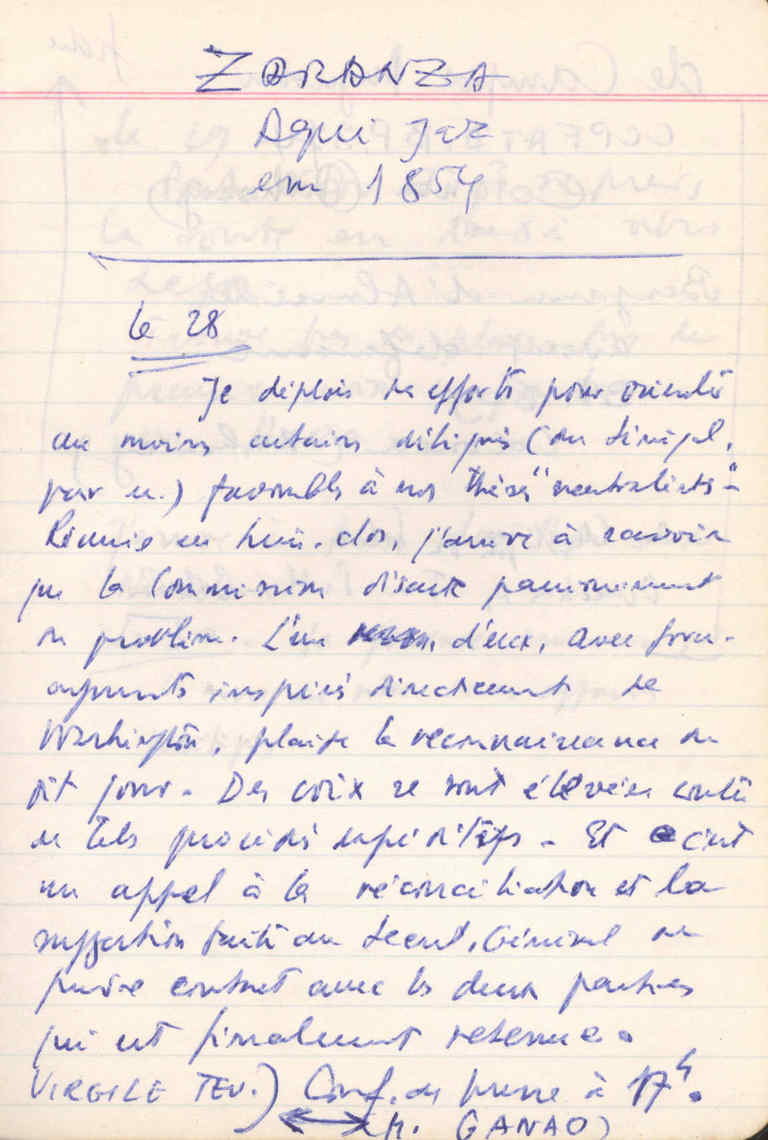 ZARANZA
Aqui jaz
em 1854
le 28
Je déploie des efforts pour orienter
au moins certains délégués (du Sénégal,
par ex.) favorables à nos thèses "neutralistes".
Réunie en huis-clos, j'arrive à savoir
que la Commission discute passionnément
ce problème. L'un d'eux, avec force-
arguments inspirés directement de
Washington, plaide la reconnaissance du
jour. Des voix se sont élevées contre
de tels procédés expéditifs. Et c'est
un appel à la réconciliation et la
suggestion faite au Secrét. Général de
prendre contact avec les deux parties
qui est finalement retenue.
VIRGILE TEV.) Conf. de presse à 17h.
(M. GANAO)